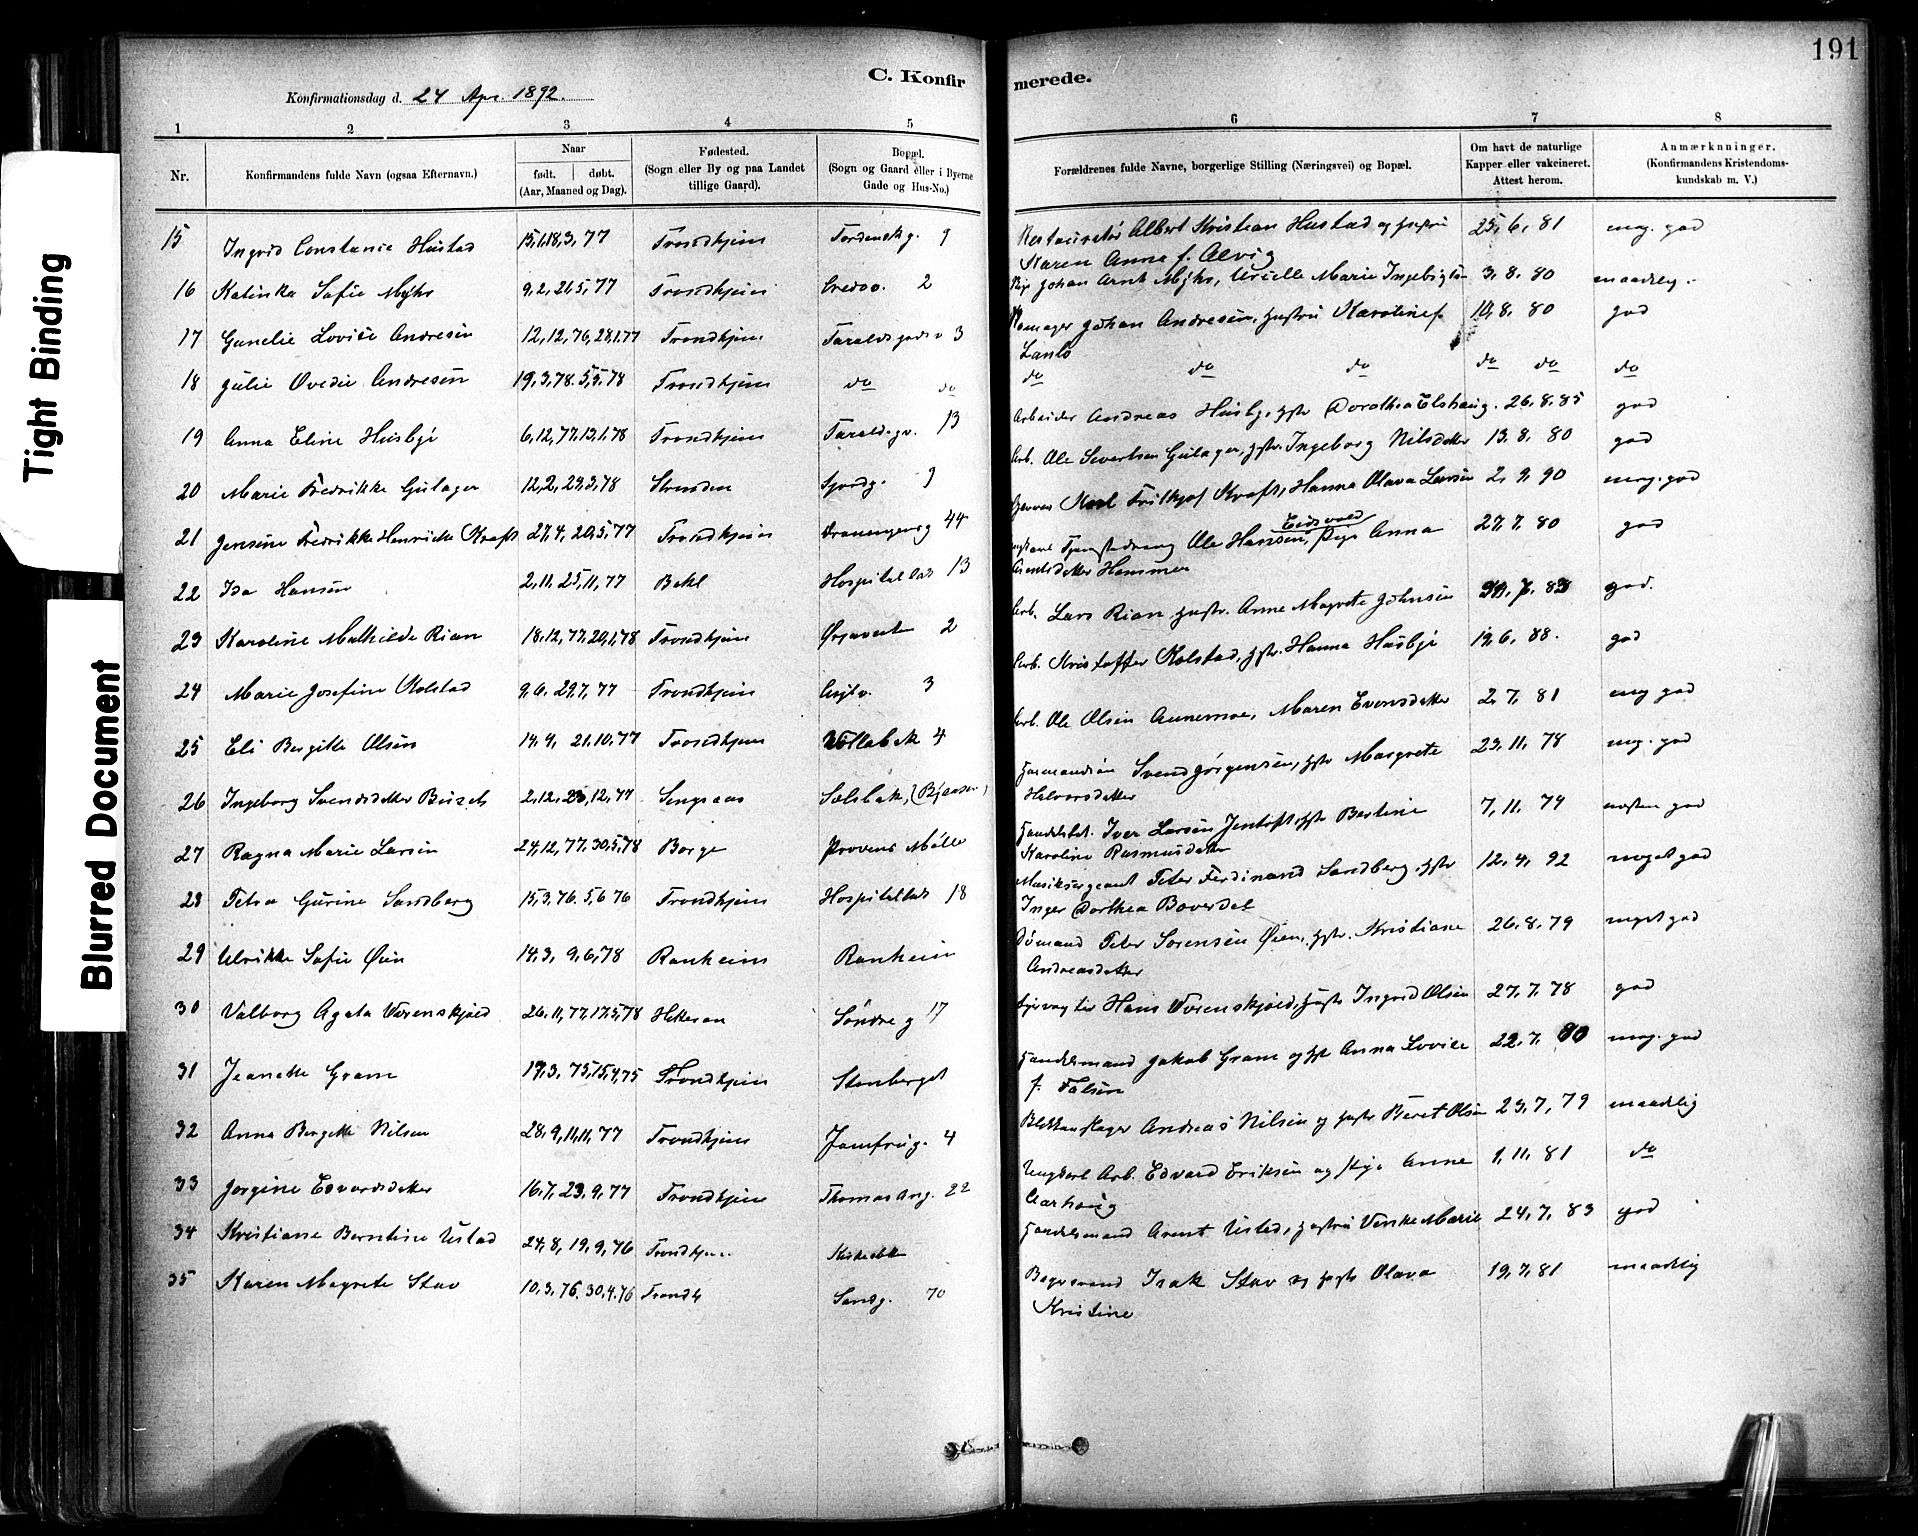 191
C. Konfirmerede.
Konfirmationsdag d. 24 Apr. 1892.
1 2 3 4 5 6 7 8
Nr.
Konfirmandens fulde Navn (ogsaa Efternavn).
Naar
født. døbt.
(Aar, Maaned og Dag).
Fødested.
(Sogn eller By og paa Landet
tillige Gaard).
Bopæl.
(Sogn og Gaard eller i Byerne
Gade og Hus-No.)
Forældrenes fulde Navne, borgerlige Stilling (Næringsvei) og Bopæl.
Om havt de naturlige
Kapper eller vakcineret.
Attest herom.
Anmærkninger.
(Konfirmandens Kristendoms-
kundskab m. V.)
15 Ingrid Constanse Hustad 15,1,18,3,77 Trondhjem Tordenskg. 9 Restauratør Albert Kristian Hustad og hustru 25,6,81 meg. god
Karen Anna f. Alvig
16 Katinka Sofie Myhr 9,2,21,5,77 Trondhjem 2 Johan Arnt Myhr, Marie 3,8,80 maadelig
17 Gunelie Lovise Andresen 12,12,76,28,1,77 Trondhjem 3 Johan Andresen, hustru Karoline f. 10,8,80 god
18 Julie Ovedie Andresen 19,3,78. 5,5,78 Trondhjem do do do do do do do do
19 Anna Eline Husby 6,12,77,13,1,78 Trondhjem 13 Arbeider Andreas Husby, hstr Dorothea Elshaug. 26,8,85 god
20 Marie Fredrikke Gulager 12,2,29,3,78 Strinden 9 Arb. Ole Sivertsen Gulager, hstr. Ingeborg Nilsdatter 13,8,80 god
21 Jensine Fredrikke Henrikke Kraft 27,4,20,5,77 Trondhjem Dronningensg 44 Karl Fritkjof Kraft, Hanna Olava Larsen 2,9,90 meg. god
22 Ida Hansen 2,11,25,11,77 Bakl Hospitallø 13 Ole Hansen, Eidsvold Pige Anna 27,7,80 god
Arntsdatter Hammer
23 Karoline Mathilde Rian 18,12,77,20,1,78 Trondhjem 2 Arb. Lars Rian hustr. Anne Magrete Johnsen god.
24 Marie Josefine Kolstad 9,6,29,7,77 Trondhjem 3 Arb. Kristoffer Kolstad, hstr. Hanna Husby 19,6,88. god
25 Eli Bergitte Olsen 14,9,21,10,77 Trondhjem 4 Arb. Ole Olsen Aunemoe, Maren Evensdatter 2,7,81 meg god
26 Ingeborg Svendsdatter Busch 2,12,23,12,77 Selsbak, Svend Jörgensen, hstr Margrete 23,11,78 meg. god
Halvorsdatter
27 Ragna Marie Larsen 24,12,77,30,5,78 Borge Iver Larsen Jentoft, hstr Bertine 7,11,79 næsten god
Karoline Rasmusdatter
28 Petra Gurine Sandberg 15,3,76. 5,6 76 Trondhjem Hospitallø 18 Musiksergeant Peter Ferdinand Sandberg, hstr 12,4,92 meget god
Inger Dorthea Boverdal
29 Ulrikke Sofie Øien 14,3,9,6,78 Ranheim Ranheim Sömand Peter Sörensen Øien, hstr. Kristiane 26,8,79 meget god
Andreasdatter
30 Valborg Agata Værenskjold 26,11,77,17,5,78 Hitteren Söndre g 17 Fyrvogter Hans Værenskjold, hustr Ingrid Olsen 27,7,78 god
31 Jeanette Gram 19,3,75,15,4,75 Trondhjem Stenberget Handelsmand Jakob Gram og hst Anna Lovise 22,7,80 meg. god
f. Falsen
32 Anna Bergitte Nilsen 28,9,11,11,77 Trondhjem Jomfrug. 4 Blikkenslager Andreas Nilsen og hustr Beret Olsen 23,7,79 maadelig
33 Jorgine Edvardsdatter 16,7,23,9,77 Trondhjem Thomas Ang. 22 Ungkarl Arb. Edvard Eriksen og Pige Anne 1,11,81 do
Aarhaug
34 Kristiane Berntine Ustad 24,8,19,9,76 Trondhjem Handelsmand Arent Ustad, hustru Venke Marie 24,7,83 god
35 Karen Magrete Stav 10,3,76. 30,4,76 Trondh Sandg. 70 Isak Stav og hustr Olava 19,7,81 maadelig
Kristine
Tight Binding
Blurred Document